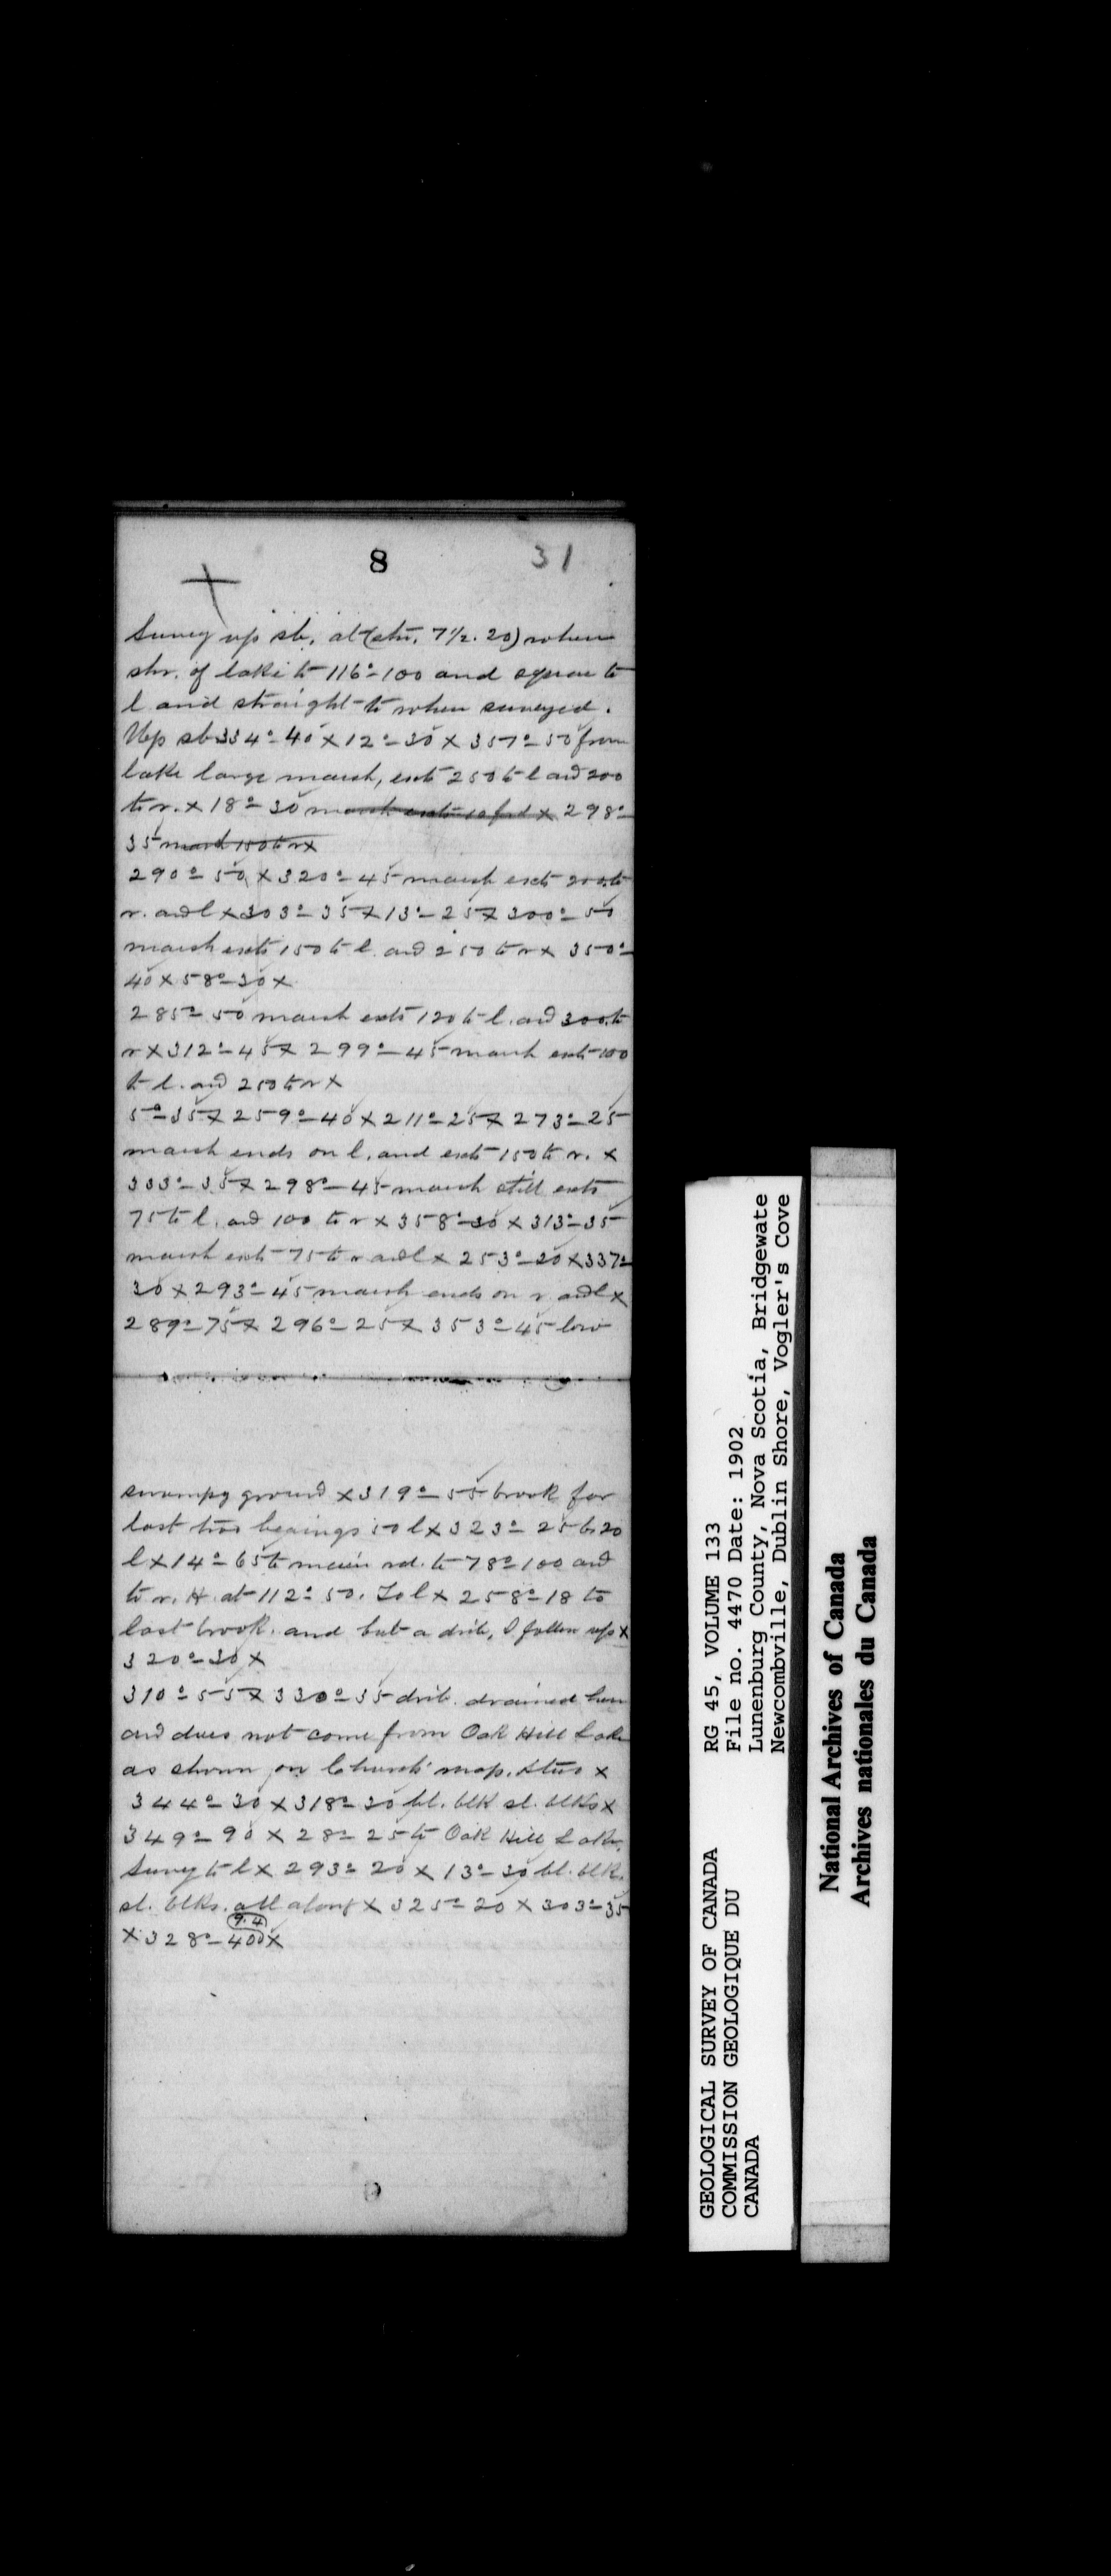 8 31
Survey up sb. at (stn. 7½. 20) when
shr. of lake to 116°-100 and square to
l and straight to when surveyed.
Up sb 334°-40 x 12°-30 x 357°-50 from
lake large marsh, exts 250 to l and 200
to r. x 18°-30 marsh exts 10 x 298°-
35 marsh 150 to r x
290°-50 x 320°-45 marsh exts 200 to
r. and l x 303°-35 x 13°-25 x 300°-50
marsh exts 150 to l. and 250 to r x 350°-
40 x 58°-30 x
285°-50 marsh exts 120 to l. and 300 to
r x 312°-45 x 299°-45 marsh exts 100
to l. and 250 to r x
5°-35 x 259°-40 x 211°-25 x 273°-25
marsh ends on l. and exts 150 to r. x
333°-35 x 298°-45 marsh still exts
75 to l. and 100 to r x 358°-30 x 313°-35
marsh exts 75 to r and l x 253°-20 x 337°-
30 x 293°-45 marsh ends on r. and l x
289°-75 x 296°-25 x 353°-45 low
swampy ground x 319°-55 brook for
last two bearings 50 l x 323°-25 b. 20
l x 14°-65 to main rd. to 78°-100 and
to r. H. at 112°-50. To l x 258°-18 to
last brook. and but a drib, I follow up x
320°-30 x
310°-55 x 330°-35 drib. drained here
and does not come from Oak Hill Lake
as shown on Church' map. x
344°-30 x 318°-30 bl. blk sl. blks x
349°-90 x 28°-25 to Oak Hill Lake.
Survey to l x 293°-20 x 13°-30 bl. blk.
sl. blks. all along x 325°-20 x 303°-35
9.4
x 328°-400 x
GEOLOGICAL SURVEY OF CANADA
COMMISSION GEOLOGIQUE DU
CANADA
RG 45, VOLUME 133
File no. 4470 Date: 1902
Lunenburg County, Nova Scotia, Bridgewate
Newcombville, Dublin Shore, Vogler's Cove
National Archives of Canada
Archives nationales du Canada